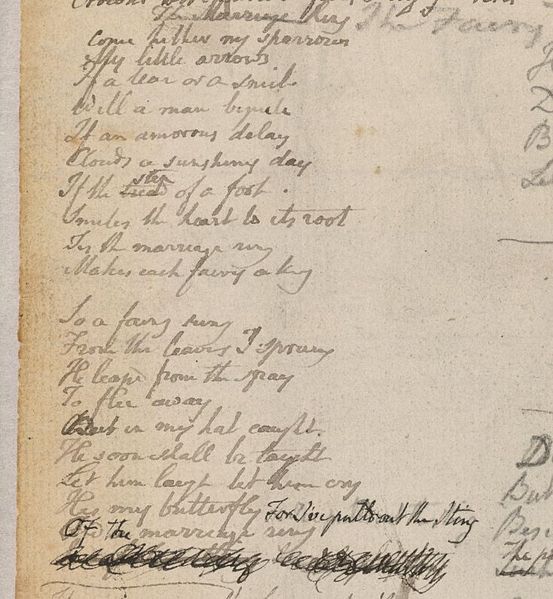 The Marriage Ring
The Fairy
Come hither my sparrows
My little arrows
If a tear or a smile
Will a man beguile
If an amorous delay
Clouds a sunshiny day
If the tread step of a foot
Smites the heart to its root
Tis the marriage ring
Makes each fairy a king
So a fairy sung
From the leaves I sprung
He leapd from the spray
To flee away
But in my hat caught
He soon shall be taught
Let him laugh let him cry
Hes my butterfly
For I've pulld out the Sting
Of the marriage ring
But